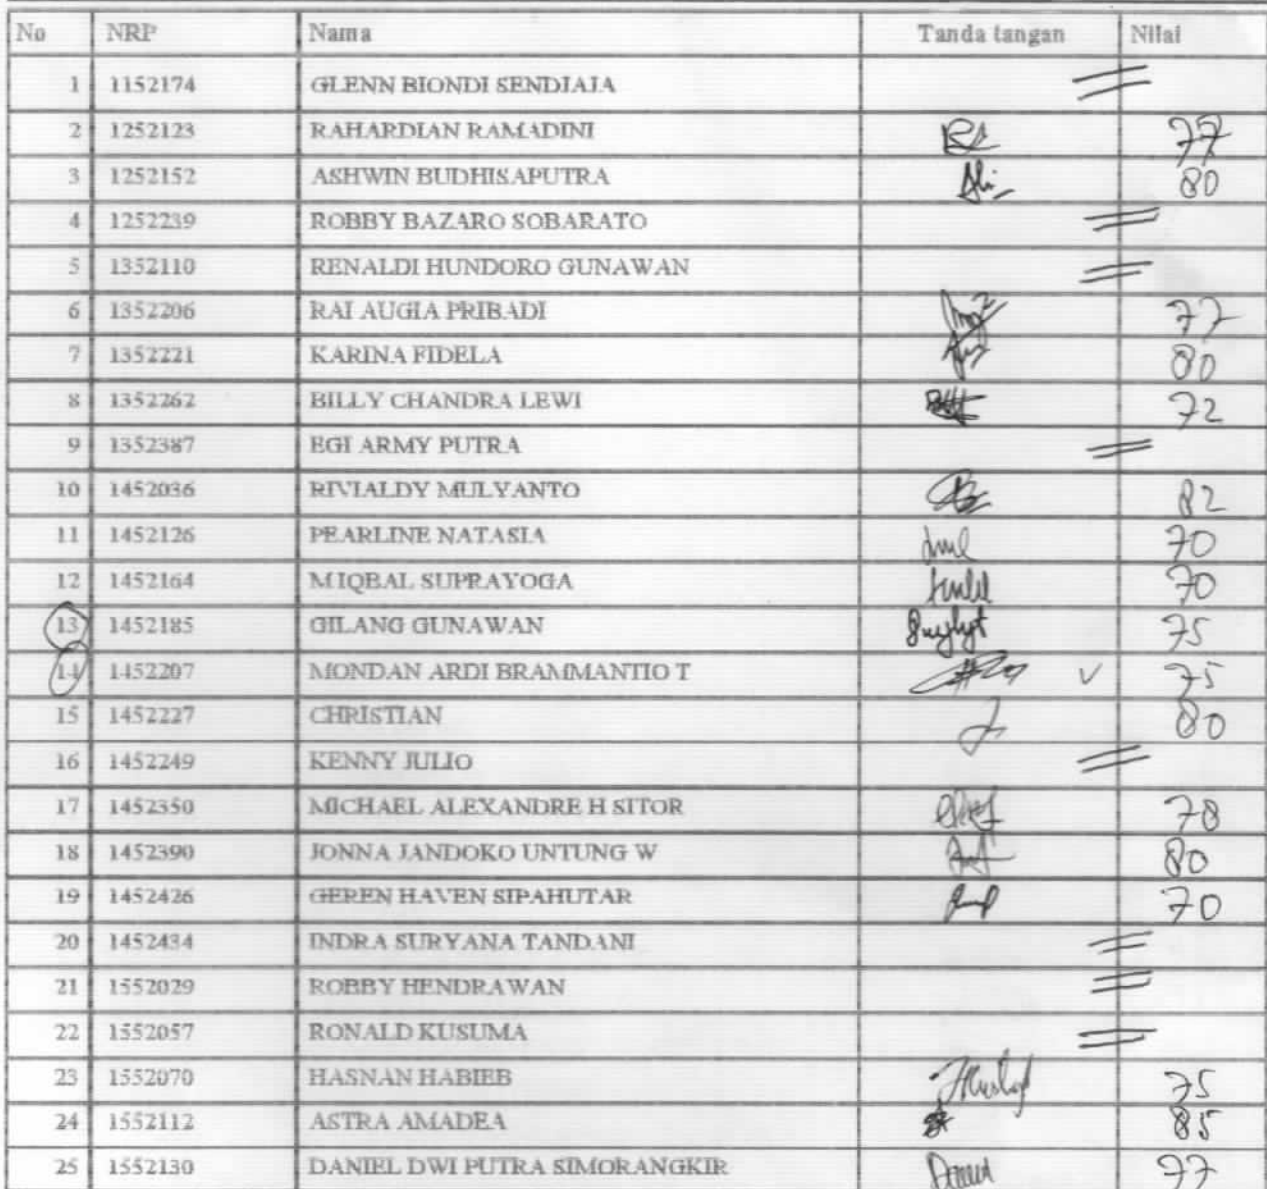 No NRP Nama Tanda tangan Nilai
1 1152174 GLENN BIONDI SENDJAJA
2 1252123 RAHARDIAN RAMADINI 77
3 1252152 ASHWIN BUDHISAPUTRA 80
4 1252239 ROBBY BAZARO SOBARATO
5 1352110 RENALDI HUNDORO GUNAWAN
6 1352206 RAI AUGIA PRIBADI 77
7 1352221 KARINA FIDELA 80
8 1352262 BILLY CHANDRA LEWI 72
9 1352387 EGI ARMY PUTRA
10 1452036 RIVIALDY MULYANTO 82
11 1452126 PEARLINE NATASIA 70
12 1452164 M IQBAL SUPRAYOGA 70
13 1452185 GILANG GUNAWAN 75
14 1452207 MONDAN ARDI BRAMMANTIO T 75
15 1452227 CHRISTIAN 80
16 1452249 KENNY JULIO
17 1452350 MICHAEL ALEXANDRE H SITOR 78
18 1452390 JONNA JANDOKO UNTUNG W 80
19 1452426 GEREN HAVEN SIPAHUTAR 70
20 1452434 INDRA SURYANA TANDANI
21 1552029 ROBBY HENDRAWAN
22 1552057 RONALD KUSUMA
23 1552070 HASNAN HABIEB 75
24 1552112 ASTRA AMADEA 85
25 1552130 DANIEL DWI PUTRA SIMORANGKIR 77